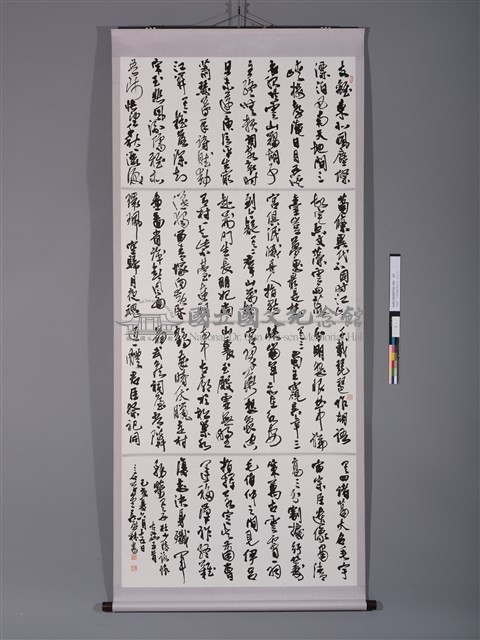 支離東北風塵際
漂泊西南天地間三
峽樓臺淹日月五溪
衣服共雲山羯胡事
主終無賴詞客哀時
且未還庾信平生最
蕭瑟暮年詩賦動
江關其二搖落深知
宋玉悲風流儒雅亦
吾師悵望千秋一灑淚
蕭條異代不同時江
山故宅空文藻雲雨荒
臺豈夢思最是楚
宮俱泯滅舟人指點
到今疑其三群山萬壑
赴荊門生長明妃尚
有村一去紫臺連朔
漠獨留青塚向黃昏
畫圖省識春風面
環珮空歸月夜魂
千載琵琶作胡語
分明怨恨曲中論
其四蜀主窺吳幸三
峽崩年亦在永安
宮翠華想像空
山裏玉殿虛無野寺
中古廟杉松巢水
鶴歲時伏臘走村
翁武侯祠屋常鄰
近一體君臣祭祀同
其五諸葛大名垂宇
宙宗臣遺像肅清
高三分割據紆籌
策萬古雲霄一羽
毛伯仲之間見伊呂
指揮若定失蕭曹
運移漢祚終難
復志決身殲軍
務勞 杜少陵詠懷
古跡五首
國立國父紀念館
National Dr. Sun Yat-sen Memorial Hall